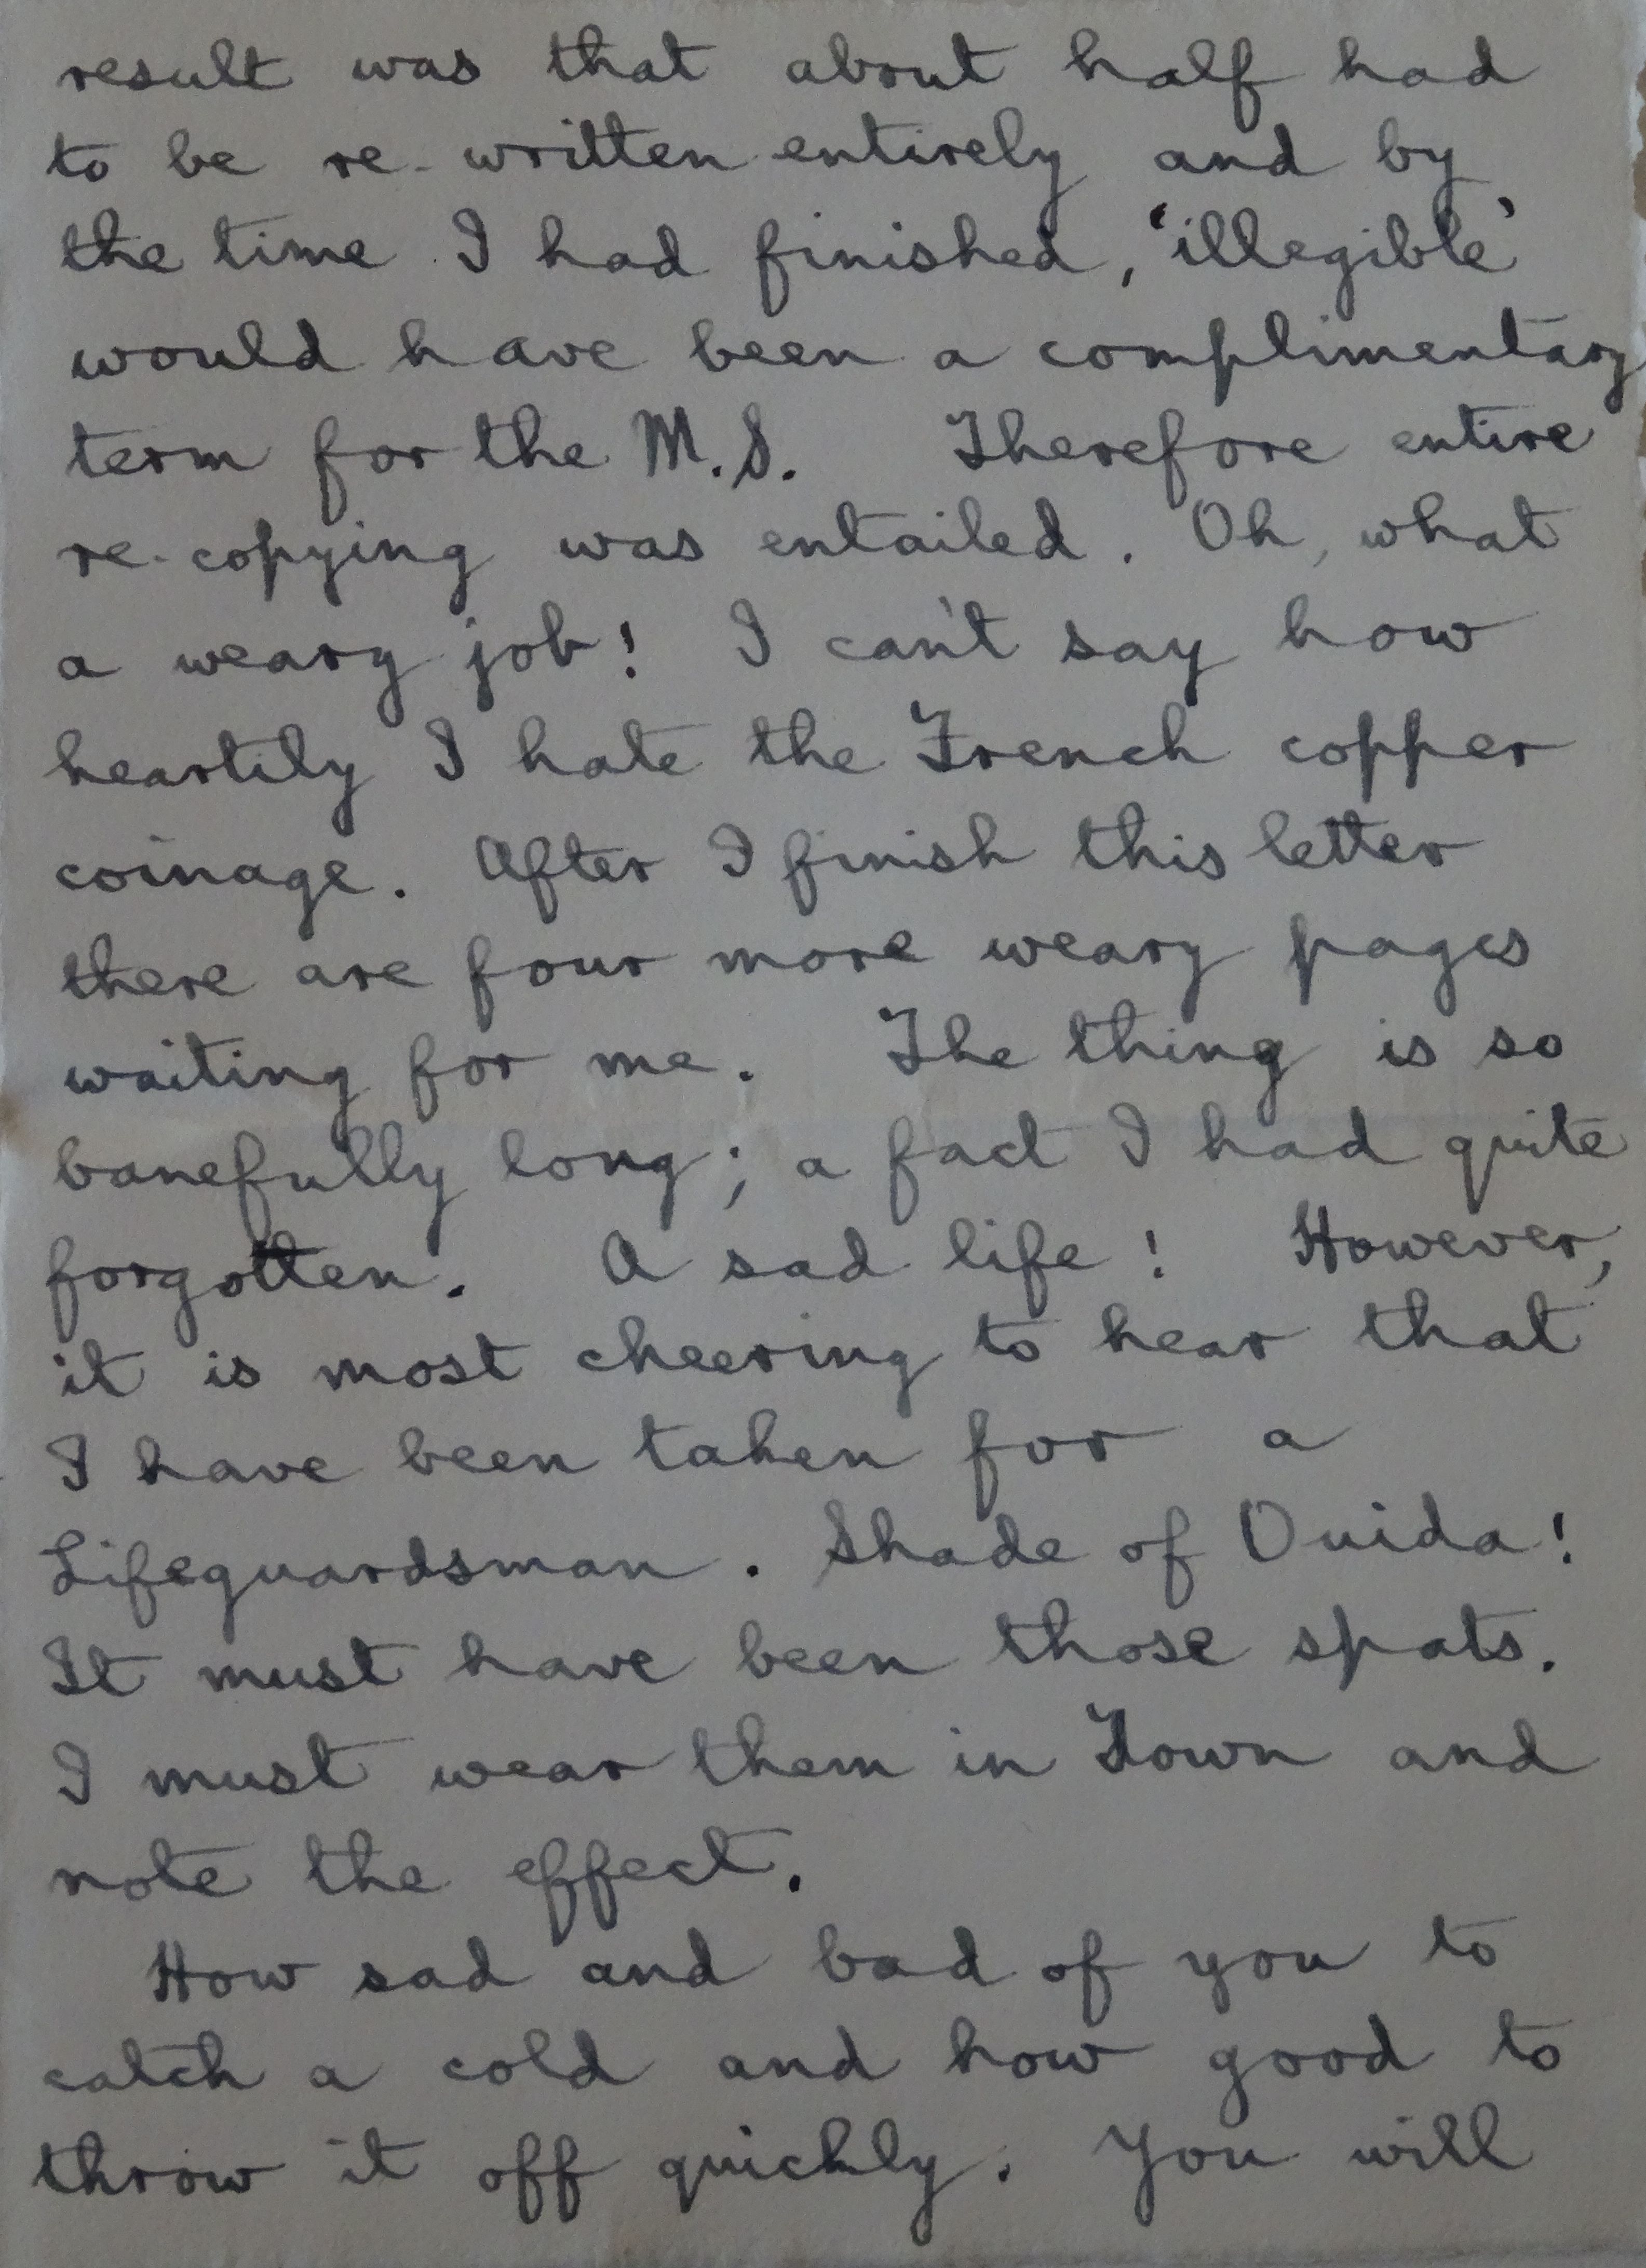 result was that about half had
to be re-written entirely and by
the time I had finished, 'illegible'
would have been a complimentary
term for the M.S. Therefore entire
re-copying was entailed. Oh, what
a weary job! I can't say how
heartily I hate the French copper
coinage. After I finish this letter
there are four more weary pages
waiting for me. The thing is so
banefully long; a fact I had quite
forgotten. A sad life! However,
it is most cheering to hear that
I have been taken for a
Lifeguardsman. Shade of Ouida!
It must have been those spats.
I must wear them in Town and
note the effect.
How sad and bad of you to
catch a cold and how good to
throw it off quickly. You will